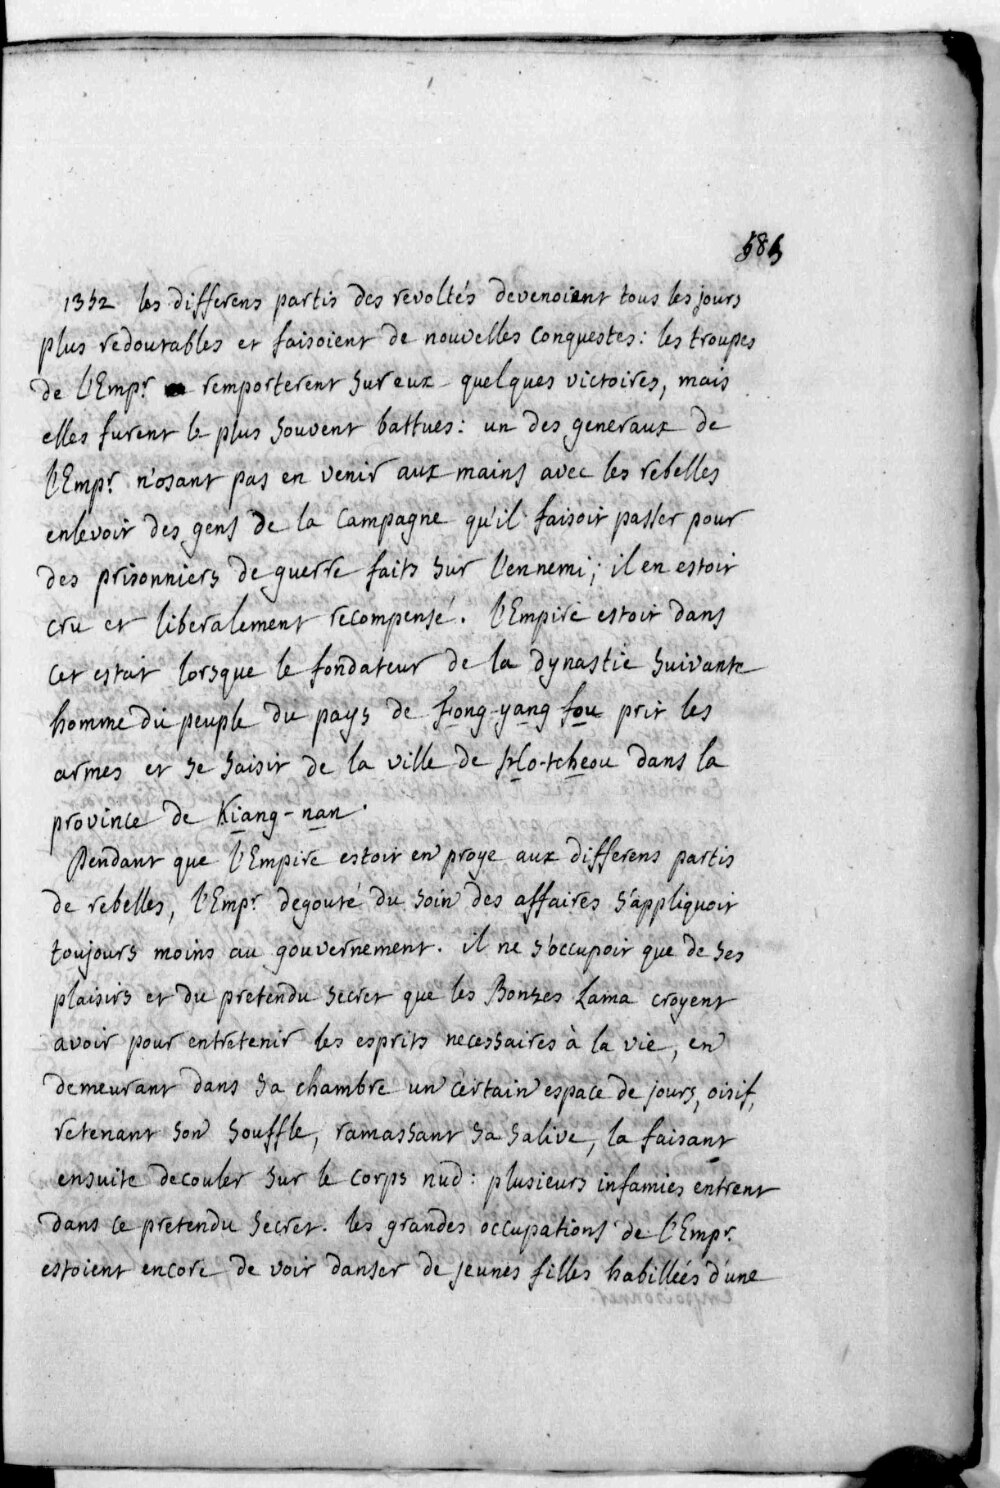 585
1352 les differens partis des revoltés devenoient tous les jours
plus redoutables et faisoient de nouvelles conquestes: les troupes
de l'Empr. remporterent sur eux quelques victoires, mais
elles furent le plus souvent battues: un des generaux de
l'Empr. n'osant pas en venir aux mains avec les rebelles
enlevoit des gens de la campagne qu'il faisoit passer pour
des prisonniers de guerre faits sur l'ennemi; il en estoit
cru et liberalement recompensé. l'Empire estoit dans
cet estat lorsque le fondateur de la dynastie suivante
homme du peuple du pays de Fong-yang fou prit les
armes et se saisit de la ville de Ho-tcheou dans la
province de Kiang-nan.
Pendant que l'Empire estoit en proye aux differens partis
de rebelles, l'Empr. degouté du soin des affaires s'appliquoit
toujours moins au gouvernement. il ne s'occupoit que de ses
plaisirs et du pretendu secret que les Bonzes Lama croyent
avoir pour entretenir les esprits necessaires à la vie, en
demeurant dans sa chambre un certain espace de jours, oisif,
retenant son souffle, ramassant sa salive, la faisant
ensuite decouler sur le corps nud: plusieurs infamies entrent
dans ce pretendu secret. les grandes occupations de l'Empr.
estoient encore de voir danser de jeunes filles habillées d'une